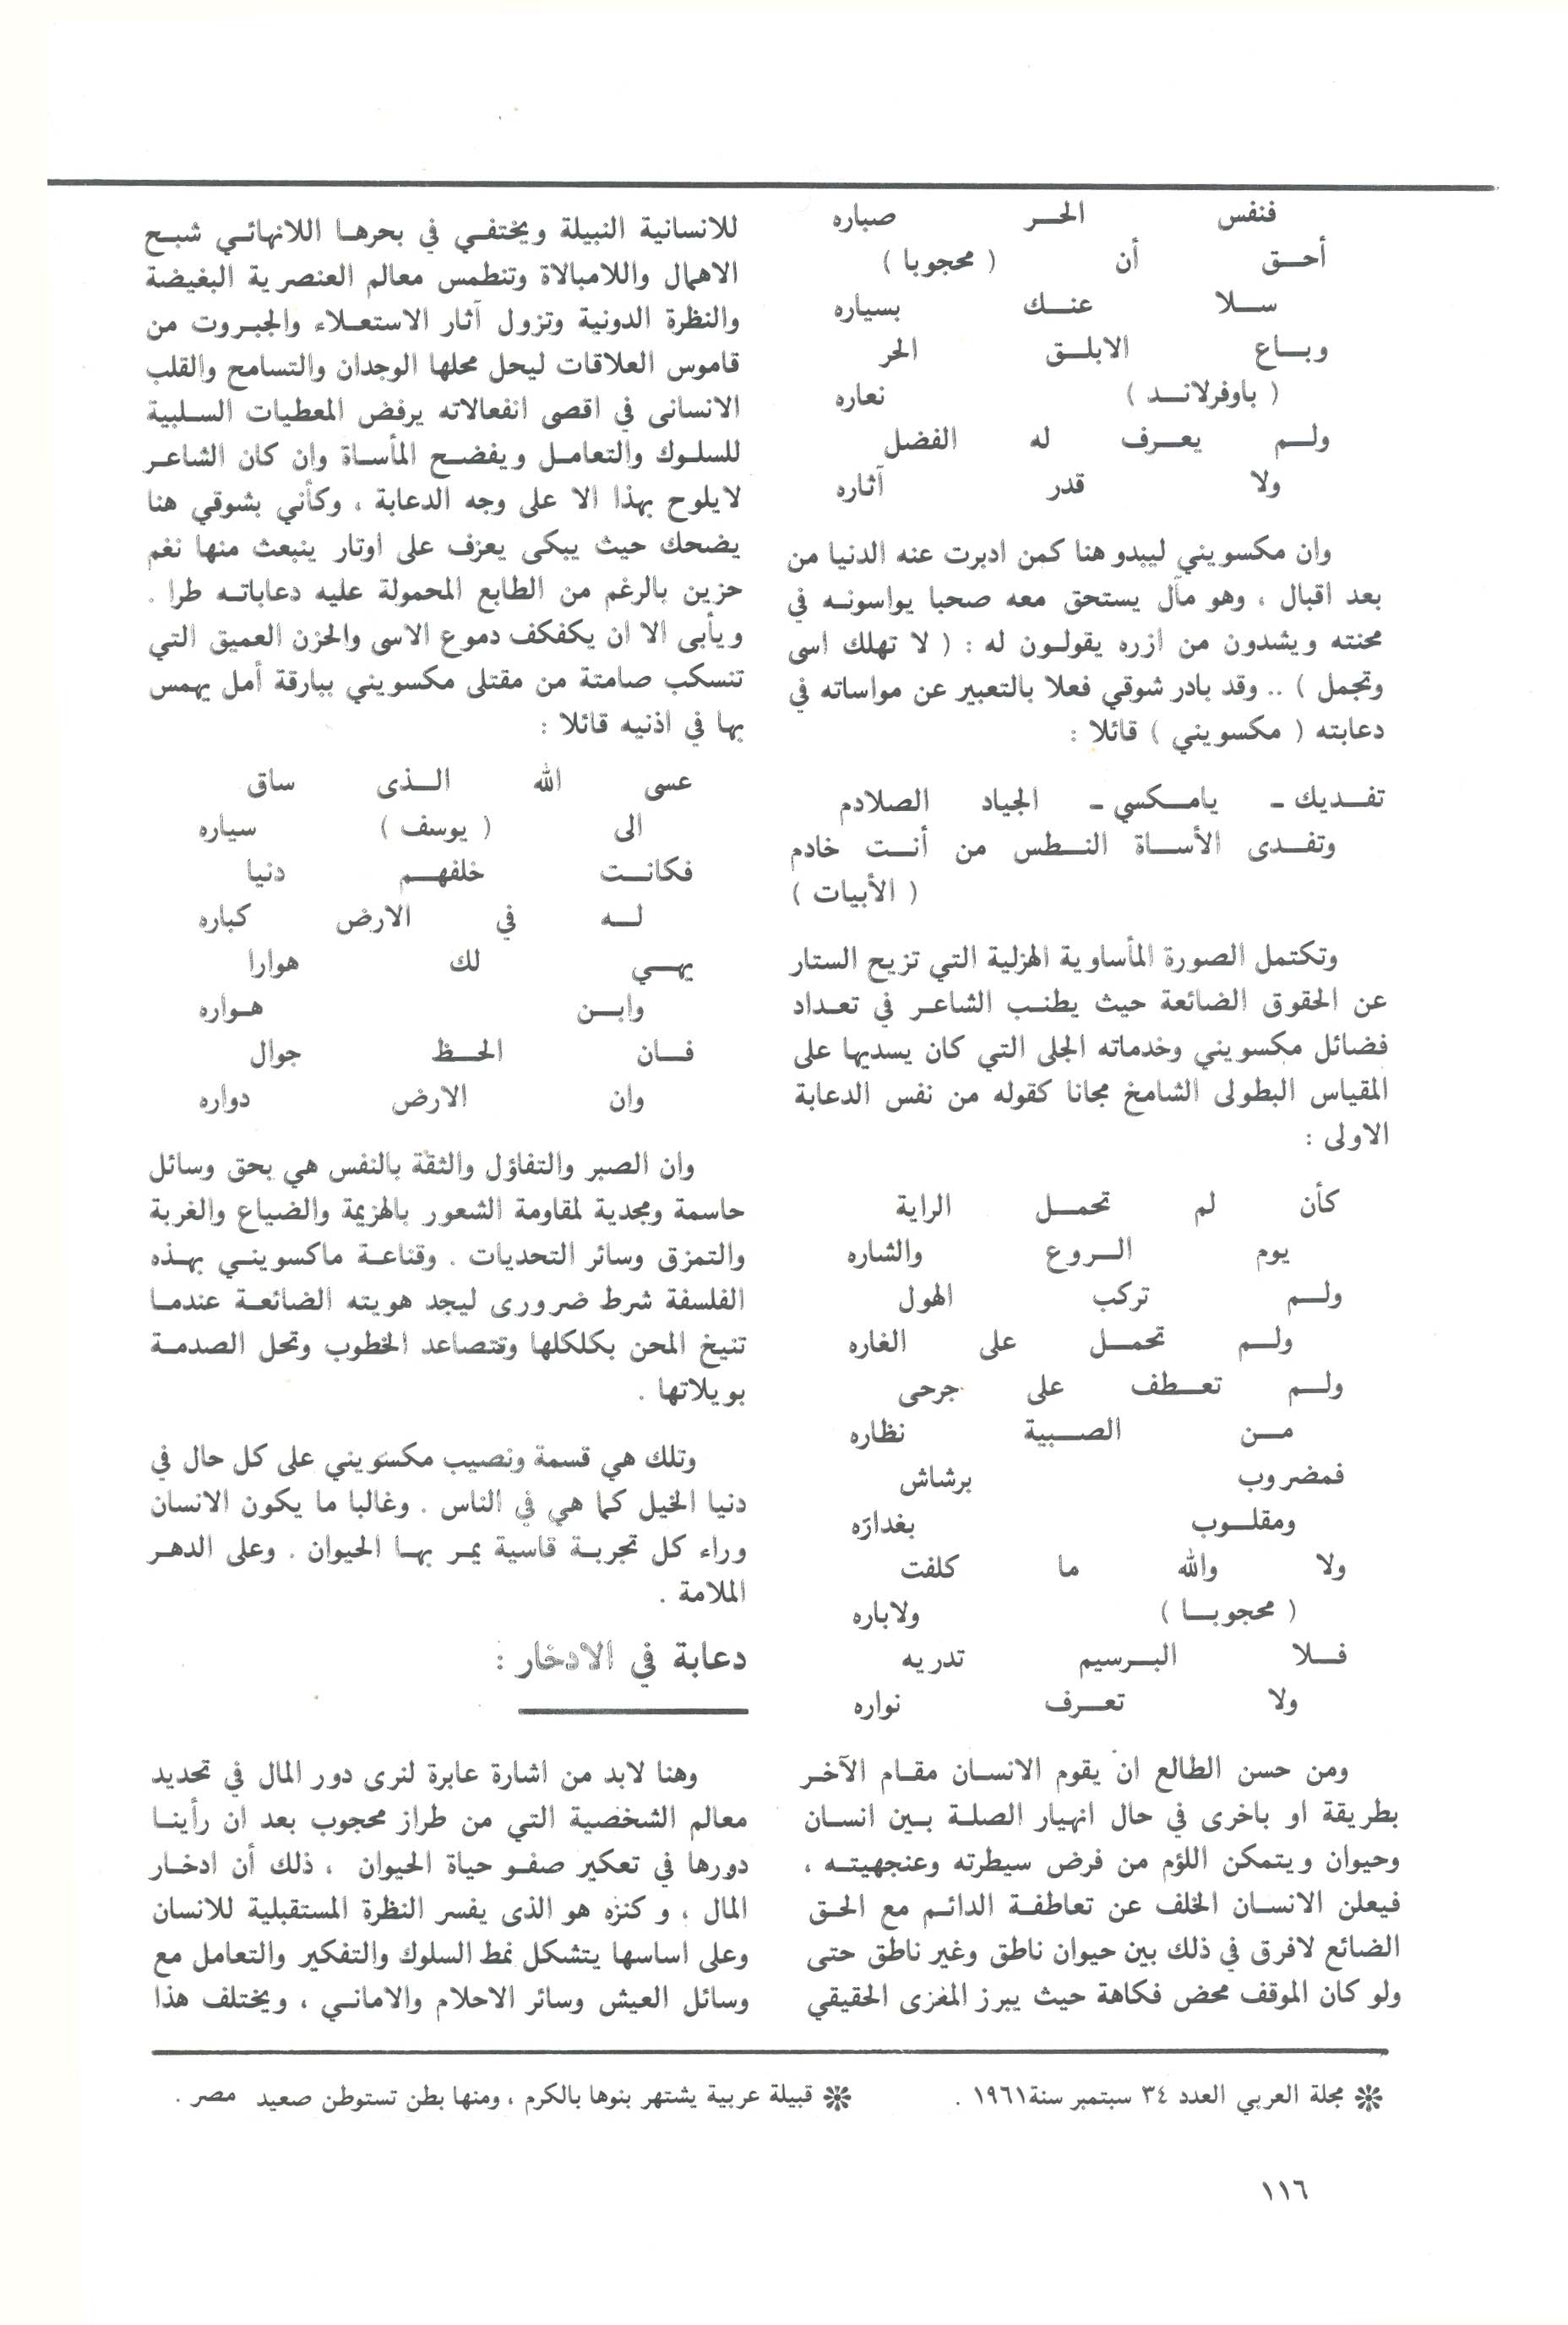 فنفس الحـر صباره
أحـق أن ( محجوبا )
سـلا عنـك بسياره
وبـاع الابلـق الحر
( باوفرلانـد ) نعاره
ولـم يعـرف له الفضل
ولا قدر آثاره
وان مكسويني ليبدو هنا كمن ادبرت عنه الدنيا من
بعد اقبال ، وهو مآل يستحق معه صحبا يواسونـه في
محنته ويشدون من ازره يقولـون له : ( لا تهلك اسى
وتجمل ) .. وقد بادر شوقي فعلا بالتعبير عن مواساته في
دعابته ( مكسويني ) قائلا :
تفـديك ـ يامـكسي ـ الجياد الصلادم
وتفـدى الأسـاة النـطس من أنـت خادم
( الأبيات )
وتكتمل الصورة المأساوية الهزلية التي تزيح الستار
عن الحقوق الضائعة حيث يطنـب الشاعـر في تعـداد
فضائل مكسويني وخدماته الجلى التي كان يسديها على
المقياس البطولى الشامخ مجانا كقوله من نفس الدعابة
الاولى :
كأن لم تحمـل الراية
يوم الـروع والشاره
ولـم تركب الهول
ولـم تحمـل على الغاره
ولـم تعـطف على جرحى
مـن الصـبية نظاره
فمضروب برشاش
ومقلـوب بغداره
ولا والله ما كلفت
( محجوبـا ) ولاباره
فـلا البـرسيم تدريه
ولا تعـرف نواره
ومن حسن الطالع ان يقوم الانسـان مقـام الآخـر
بطريقة او باخرى في حال انهيار الصلـة بـين انسـان
وحيوان ويتمكن اللؤم من فرض سيطرته وعنجهيتـه ،
فيعلن الانسـان الخلف عن تعاطفـة الدائـم مع الحـق
الضائع لافرق في ذلك بين حيوان ناطق وغير ناطق حتى
ولو كان الموقف محض فكاهة حيث يبرز المغزى الحقيقي
للانسانية النبيلة ويختفـي في بحرهـا اللانهائـي شبـح
الاهمال واللامبالاة وتنطمس معالم العنصرية البغيضة
والنظرة الدونية وتزول آثار الاستعـلاء والجبـروت من
قاموس العلاقات ليحل محلها الوجدان والتسامح والقلب
الانسانى في اقصى انفعالاته يرفض المعطيات السـلبية
للسلـوك والتعامـل ويفضـح المأسـاة وان كان الشاعـر
لايلوح بهذا الا على وجه الدعابة ، وكأني بشوقي هنا
يضحك حيث يبكى يعزف على اوتار ينبعث منها نغم
حزين بالرغم من الطابع المحمولة عليه دعاباتـه طرا .
ويأبى الا ان يكفكف دموع الاسى والحزن العميق التي
تنسكب صامتة من مقتلى مكسويني ببارقة أمل يهمس
بها في اذنيه قائلا :
عسى الله الـذى ساق
الى ( يوسف ) سياره
فكانـت خلفهـم دنيا
لـه في الارض كباره
يهـي لك هوارا
وابـن هـواره
فـان الحـظ جوال
وان الارض دواره
وان الصبر والتفاؤل والثقة بالنفس هي بحق وسائل
حاسمة ومجدية لمقاومة الشعور بالهزيمة والضياع والغربة
والتمزق وسائر التحديات . وقناعـة ماكسوينـي بهـذه
الفلسفة شرط ضرورى ليجد هويته الضائعـة عندمـا
تنيخ المحن بكلكلها وتتصاعد الخطوب وتحل الصدمـة
بويلاتها .
وتلك هي قسمة ونصيب مكسويني على كل حال في
دنيا الخيل كما هي في الناس . وغالبا ما يكون الانسان
وراء كل تجربـة قاسية يمـر بهـا الحيوان . وعلى الدهـر
الملامة .
دعابة في الادخار :
وهنا لابد من اشارة عابرة لنرى دور المال في تحديد
معالم الشخصية التي من طراز محجوب بعد ان رأينـا
دورها في تعكير صفـو حياة الحيوان ، ذلك أن ادخـار
المال ، وكنزه هو الذى يفسر النظرة المستقبلية للانسان
وعلى اساسها يتشكل نمط السلوك والتفكير والتعامل مع
وسائل العيش وسائر الاحلام والامانـي ، ويختلف هذا
❊ مجلة العربي العدد ٣٤ سبتمبر سنة١٩٦١ .
❊ قبيلة عربية يشتهر بنوها بالكرم ، ومنها بطن تستوطن صعيد مصر .
١١٦